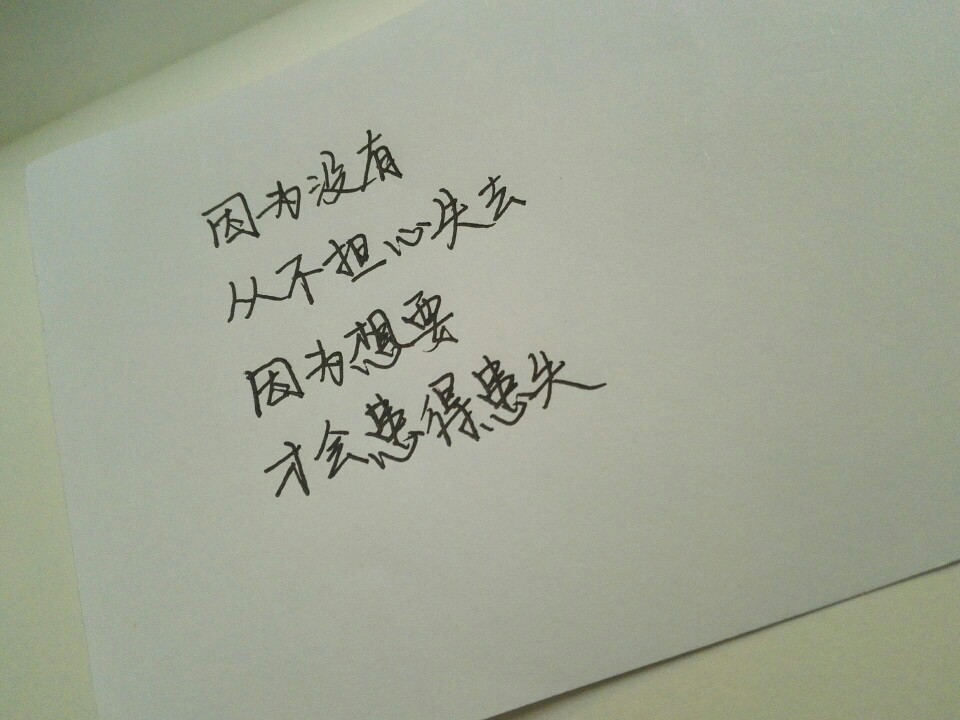 因为没有
从不担心失去
因为想要
才会患得患失